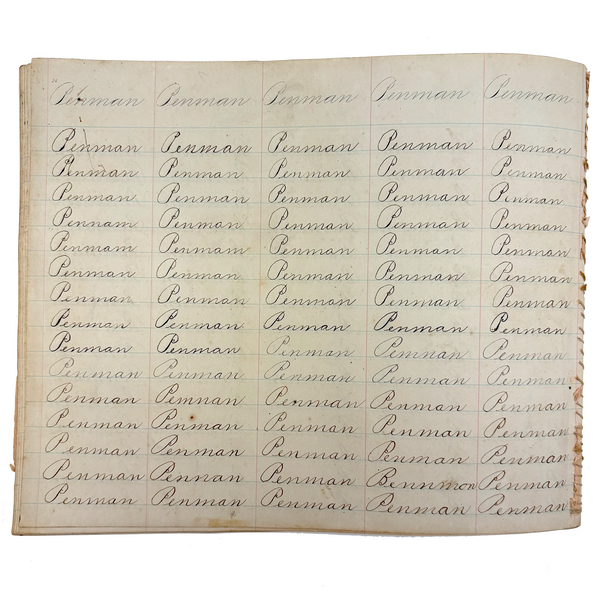 Penman Penman Penman Penman Penman
Penman Penman Penman Penman Penman
Penman Penman Penman Penman Penman
Penman Penman Penman Penman Penman
Pennam Penman Penman Penman Penman
Penmam Penmam Penman Penman Penman
Penman Penman Penman Penman Penman
Penman Penman Penman Penman Penman
Penman Penman Penman Penman Penman
Penman Penman Penman Penman Penman
Penman Penman Penman Penman Penman
Penman Penman Penman Penman Penman
Penman Penman Penman Penman Penman
Penman Penman Penman Penman Penman
Penman Pennan Penman Bennmon Penman
Penman Penman Penman Penman Penman